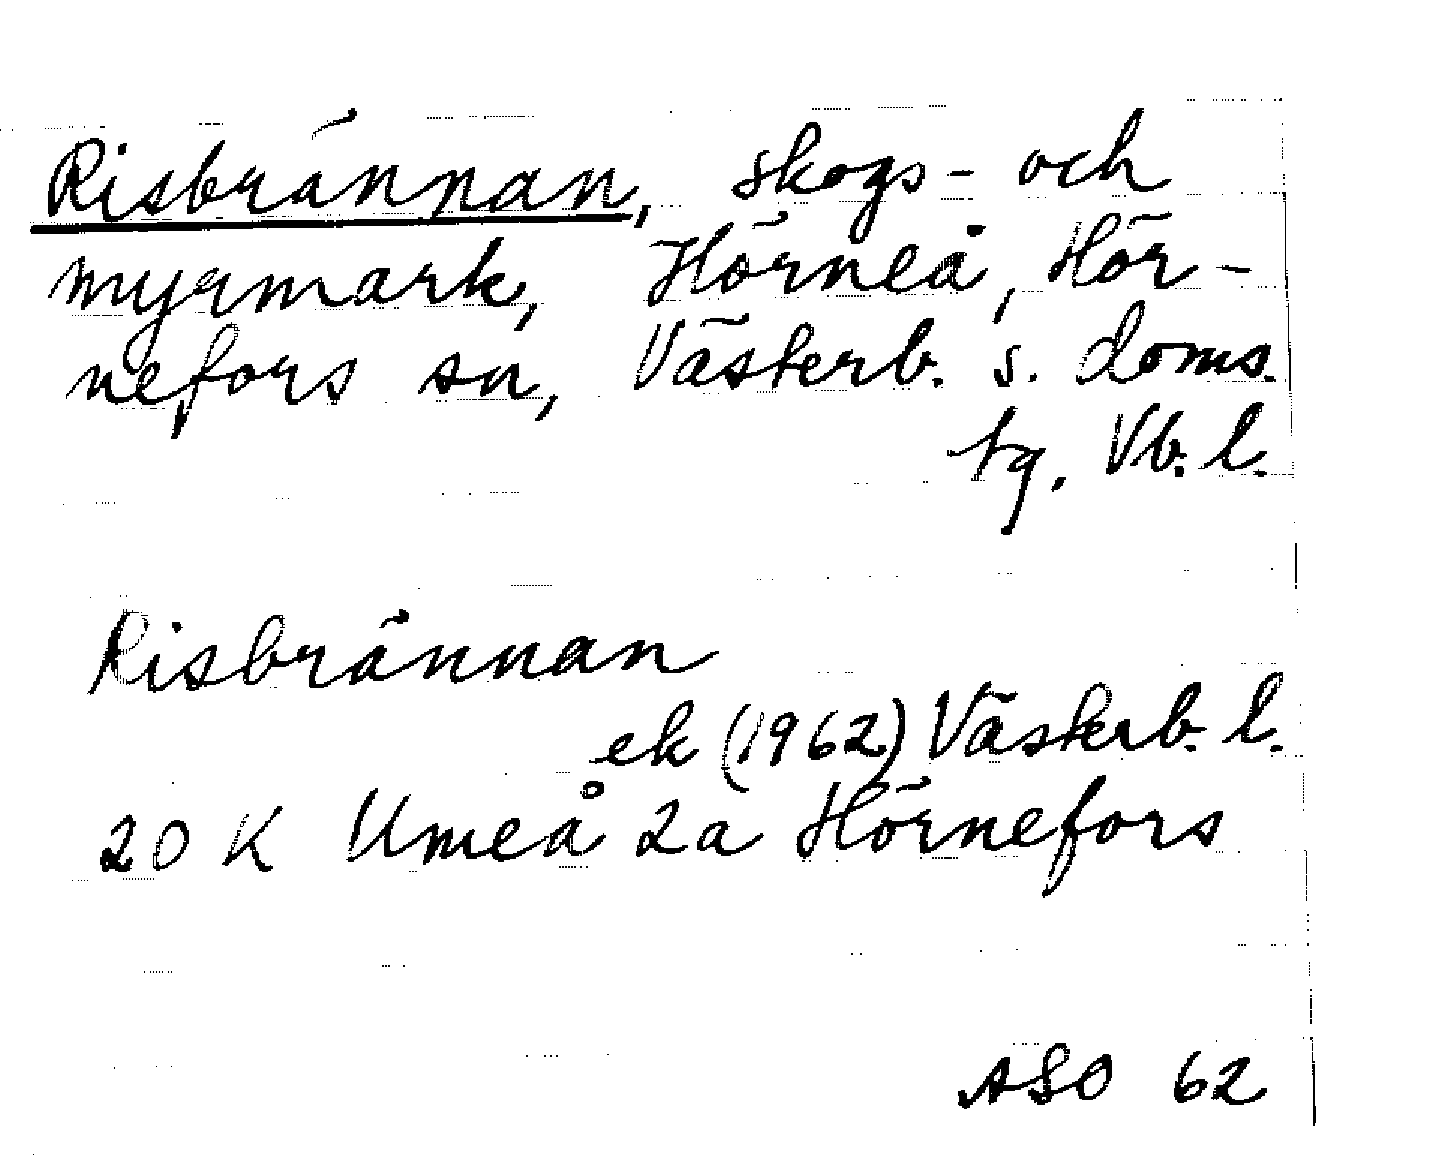 Risbrännan, skogs- och
myrmark, Hörneå, Hör-
nefors sn, Västerb. s. doms.
tg. Vb. l.
Risbrännan
ek (1962) Västerb. l.
20 K Umeå 2a Hörnefors
ASO 62